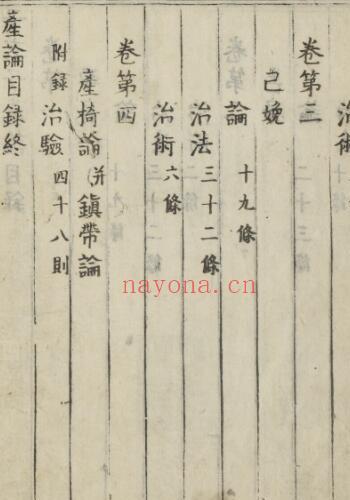 治術
卷第三
己娩
論 十九條
治法 三十二條
治術 六條
卷第四
產椅論 并鎮帶論
附録 治驗 四十八則
產論目録終
nayona.cn